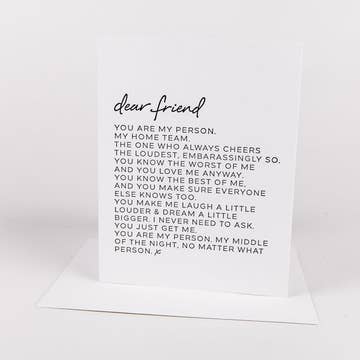 dear friend
YOU ARE MY PERSON.
MY HOME TEAM.
THE ONE WHO ALWAYS CHEERS
THE LOUDEST, EMBARASSINGLY SO.
YOU KNOW THE WORST OF ME
AND YOU LOVE ME ANYWAY.
YOU KNOW THE BEST OF ME,
AND YOU MAKE SURE EVERYONE
ELSE KNOWS TOO.
YOU MAKE ME LAUGH A LITTLE
LOUDER & DREAM A LITTLE
BIGGER. I NEVER NEED TO ASK.
YOU JUST GET ME.
YOU ARE MY PERSON. MY MIDDLE
OF THE NIGHT, NO MATTER WHAT
PERSON.